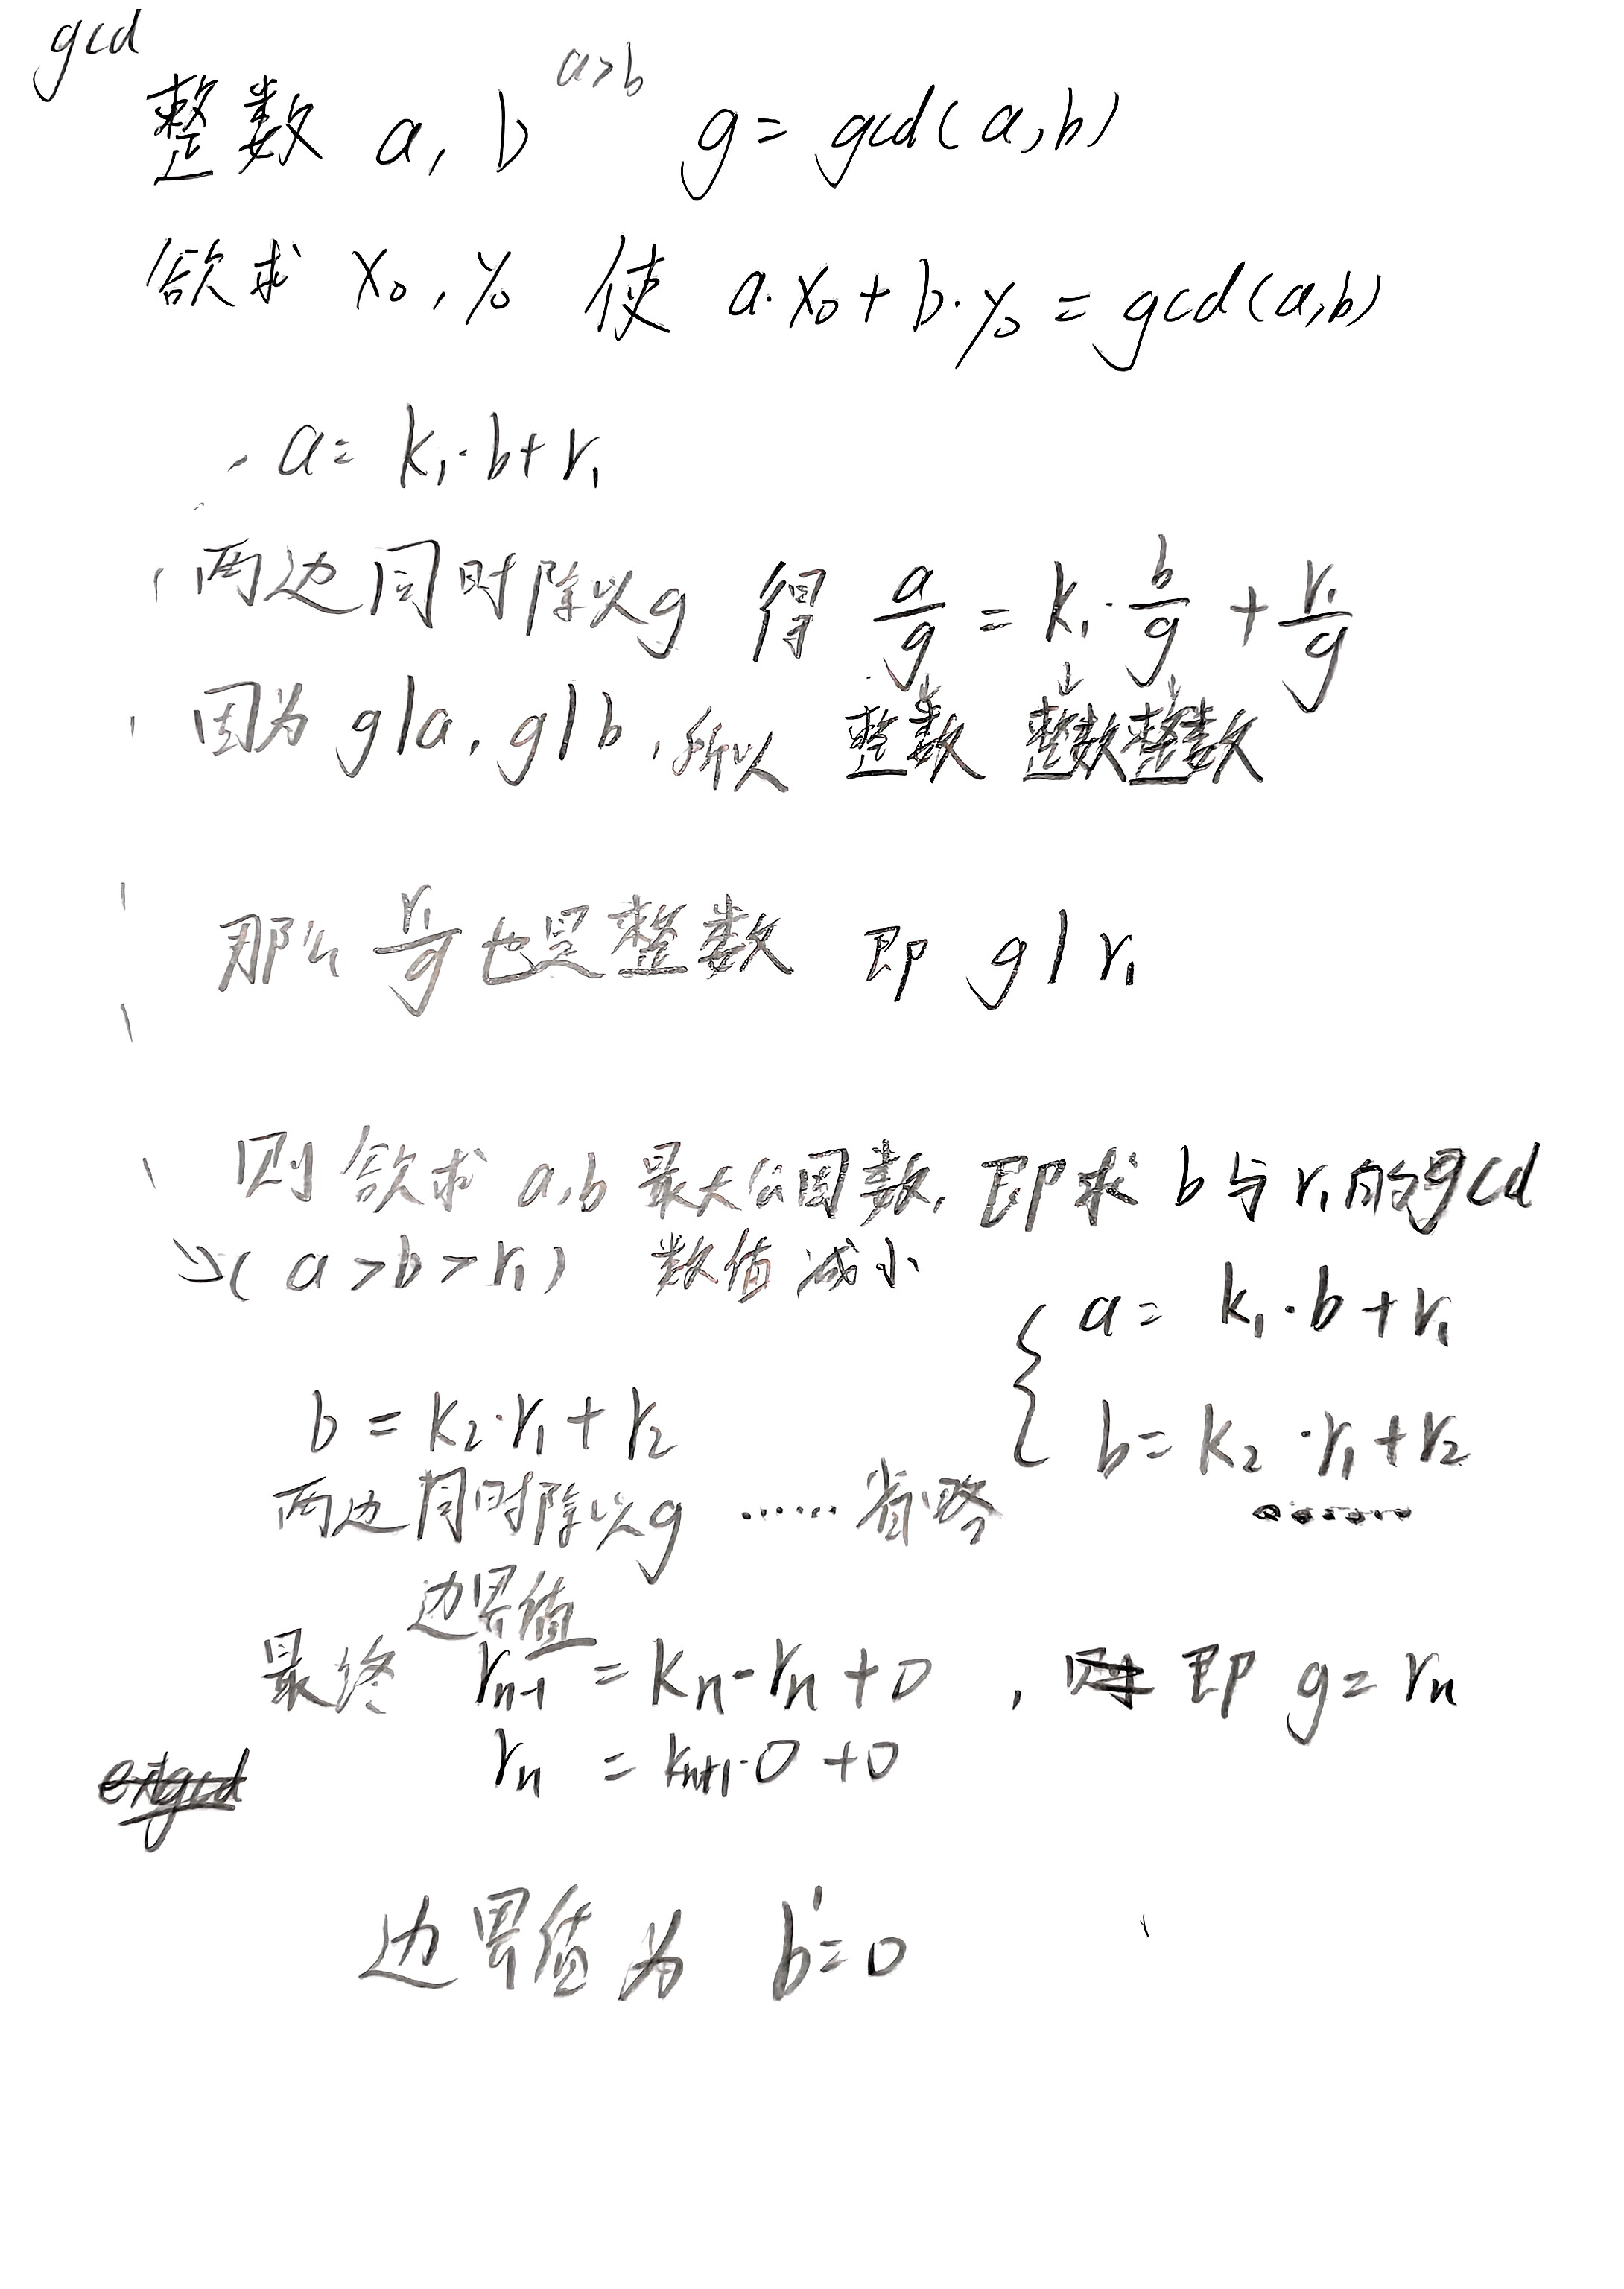 gcd
整数 a, b a>b g = gcd(a,b)
欲求 x₀, y₀ 使 a·x₀ + b·y₀ = gcd(a,b)
a = k₁·b + r₁
两边同时除以g 得 a/g = k₁·b/g + r₁/g
因为 g|a, g|b, 所以 整数 整数 整数
那么 r₁/g 也是整数 即 g|r₁
则欲求 a,b 最大公因数, 即求 b与r₁的gcd
(a>b>r₁) 数值减小
a = k₁·b + r₁
b = k₂·r₁ + r₂
b = k₂·r₁ + r₂
两边同时除以g ...... 省略
边界值
最终 rₙ₋₁ = kₙ·rₙ + 0 , 即 g = rₙ
rₙ = kₙ₊₁·0 + 0
extgcd
边界值为 b' = 0